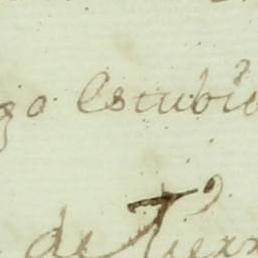 go Estubie
de Tierr